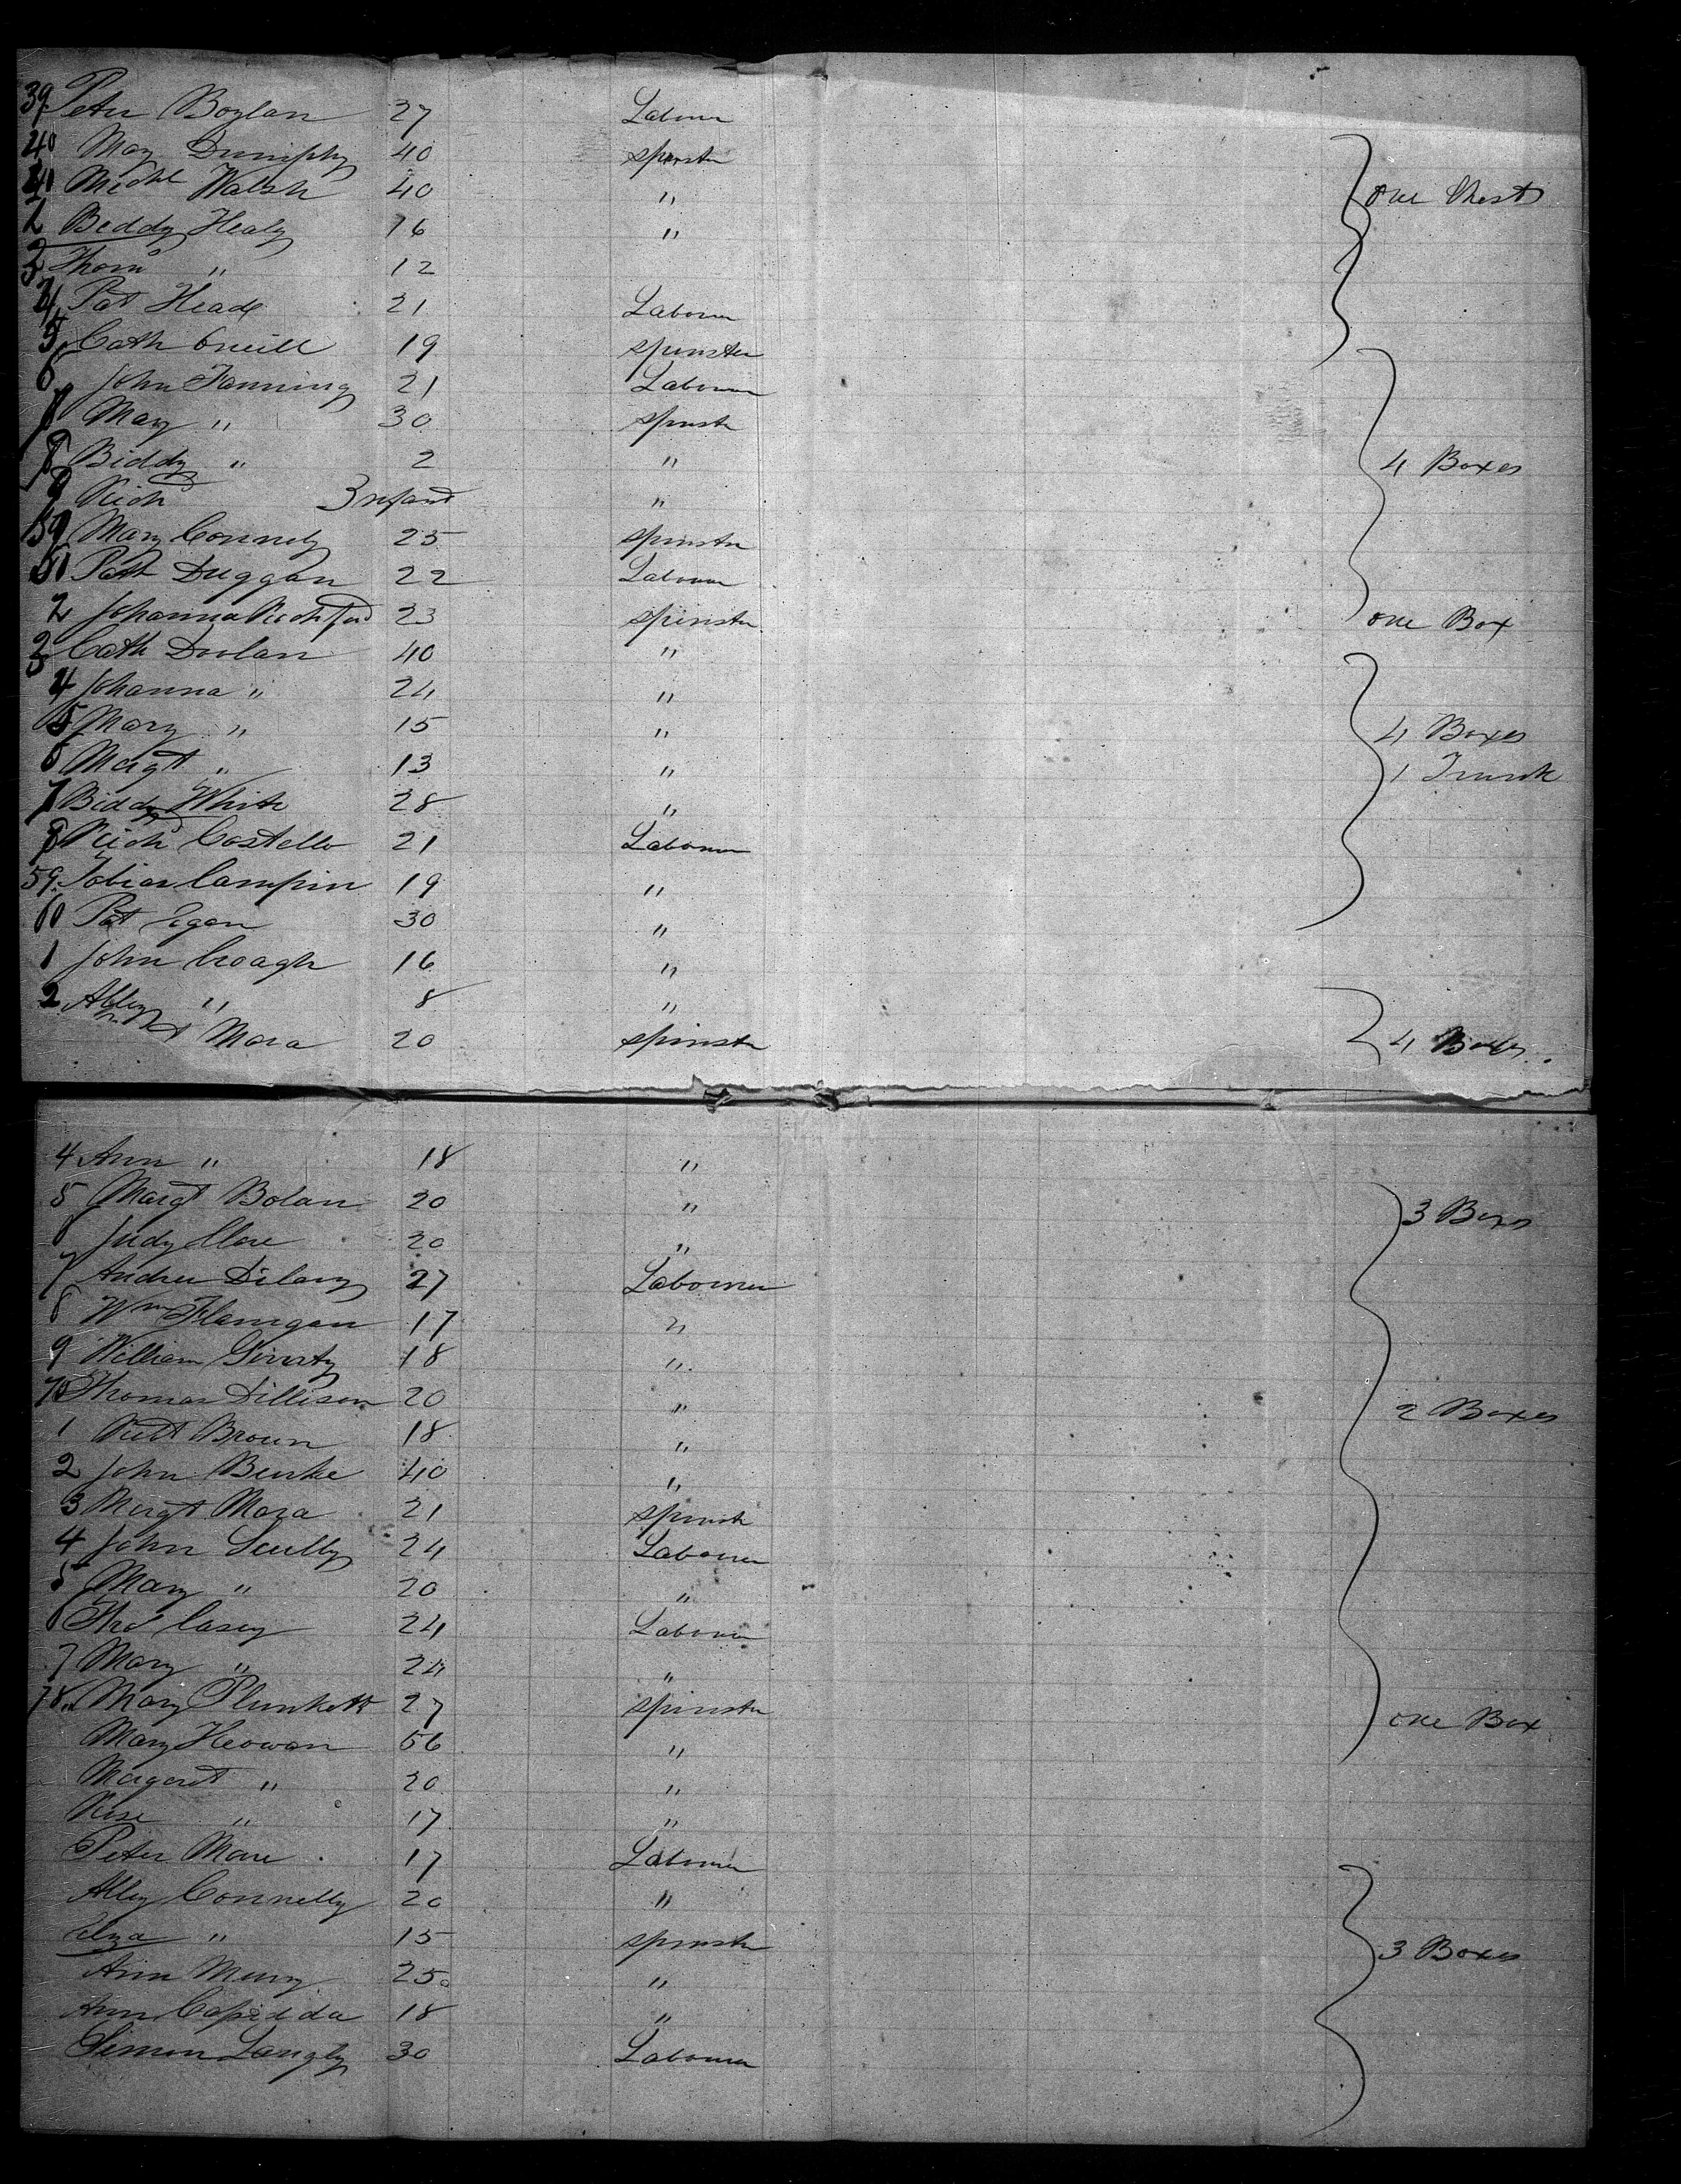 39 Peter Boylan 27 Labourer
40 Mary Dumphy 40 spinster
41 Michl Walsh 40 " one Chest
2 Beddy Healy 16 "
3 Thoms " 12
4 Pat Heady 21 Labourer
5 Cath Oneill 19 spinster
6 John Fanning 21 Labourer
7 Mary " 30 spinster
8 Biddy " 2 " 4 Boxes
9 Richd Infant "
50 Mary Connely 25 spinster
51 Patk Duggan 22 Labourer
2 Johanna Rochford 23 spinster one Box
3 Cath Doolan 40 "
4 Johanna " 24 "
5 Mary " 15 " 4 Boxes
6 Margt " 13 " 1 Trunk
7 Biddy White 28 "
8 Richd Costello 21 Labourer
59 Tobias Campin 19 "
60 Pat Egan 30 "
1 John Croagh 16 "
2 Alley " 8 "
Mara 20 spinster 4 Boxes.
4 Ann " 18 "
5 Margt Bolan 20 " 3 Boxes
6 Judy Clare 20 "
7 Andrew Dilany 27 Labourer
8 Wm Flanigan 17 "
9 William Ginnty 18 "
70 Thomas Dillison 20 " 2 Boxes
1 Brown 18 "
2 John Burke 40 "
3 Margt Mara 21 spinster
4 John Scully 24 Labourer
5 Mary " 20 "
6 Thos Casey 24 Labourer
7 Mary " 24 "
78 Mary Plunkett 27 spinster one Box
Mary Heowan 56 "
Margaret " 20 "
Rose " 17 "
Peter Mare 17 Labourer
Alley Connelly 20 "
Eliza " 15 spinster 3 Boxes
Ann Murry 25 "
Ann 18 "
Simon Langly 30 Labourer